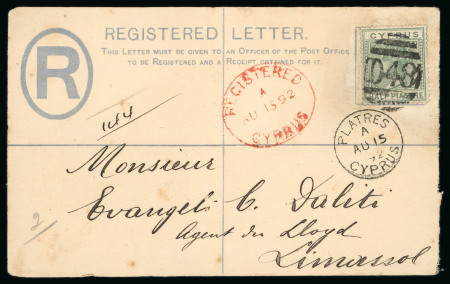 REGISTERED LETTER.
THIS LETTER MUST BE GIVEN TO AN OFFICER OF THE POST OFFICE
TO BE REGISTERED AND A RECEIPT OBTAINED FOR IT.
R
CYPRUS
048
REGISTERED
A
AU 15 92
CYPRUS
PLATRES
A
AU 15
CYPRUS
144
Monsieur
2
Evangeli C. Daliti
Agent du Lloyd
Limassol